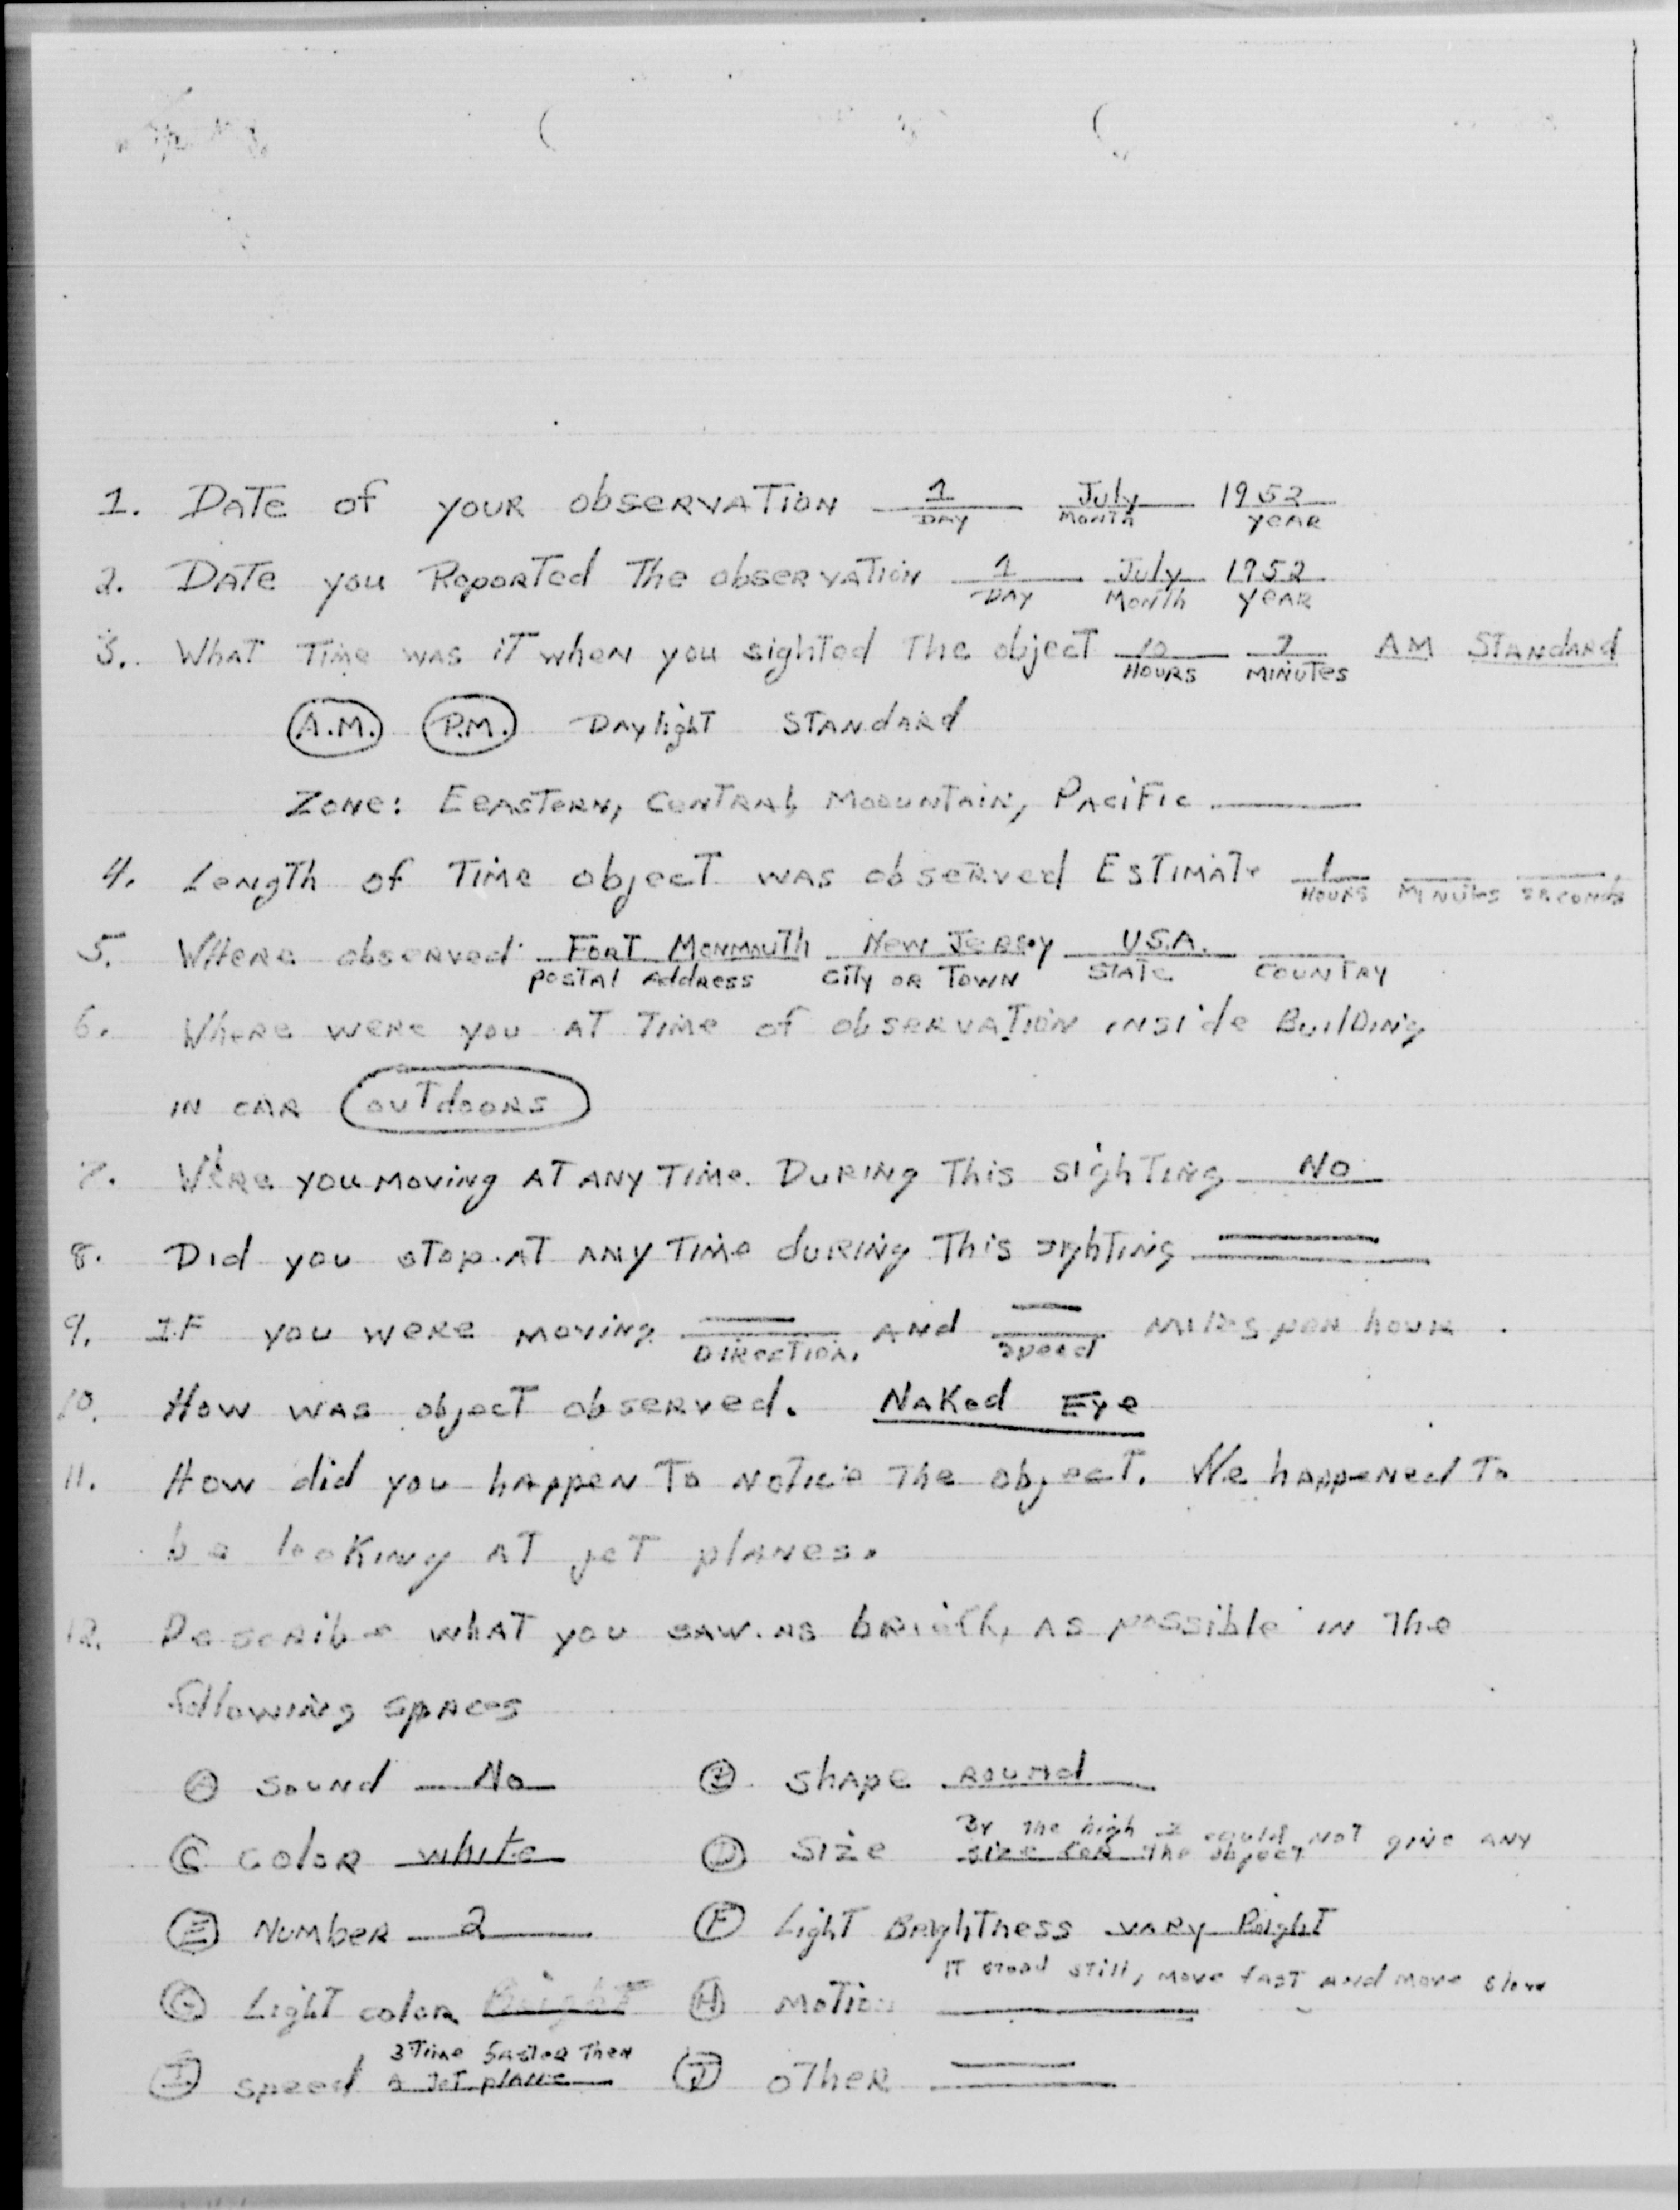 1. Date of your observation 1 July 1952
Day Month Year
2. Date you Reported The observation 1 July 1952
Day Month Year
3. What Time was it when you sighted The object 10 AM Standard
Hours Minutes
A.M. P.M. Daylight Standard
Zone: Eeastern, Central, Moountain, Pacific
4. Length of Time object was observed Estimate 1
Hours Minutes Seconds
5. Where observed Fort Monmouth New Jersey U.S.A.
Postal Address City or Town State Country
6. Where were you at Time of observation inside Building
in car outdoors
7. Were you moving at any Time During This sighting No
8. Did you stop at any Time during This sighting
9. If you were moving and miles per hour
Direction, Speed
10. How was object observed. Naked Eye
11. How did you happen To notice The object. We happened To
be looking at jet planes.
12. Describe what you saw as briefly as possible in The
following spaces
A Sound No B Shape Round
By The high I could not give any
C Color White D Size size for The object
E Number 2 F Light Brightness vary Bright
It stood still, move fast and move slow
G Light color Bright H Motion
3 Time faster Then
I Speed a Jet plane J Other